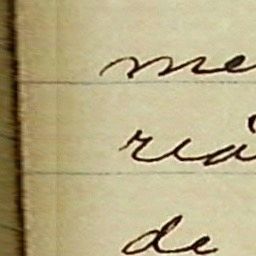 me
riá
de